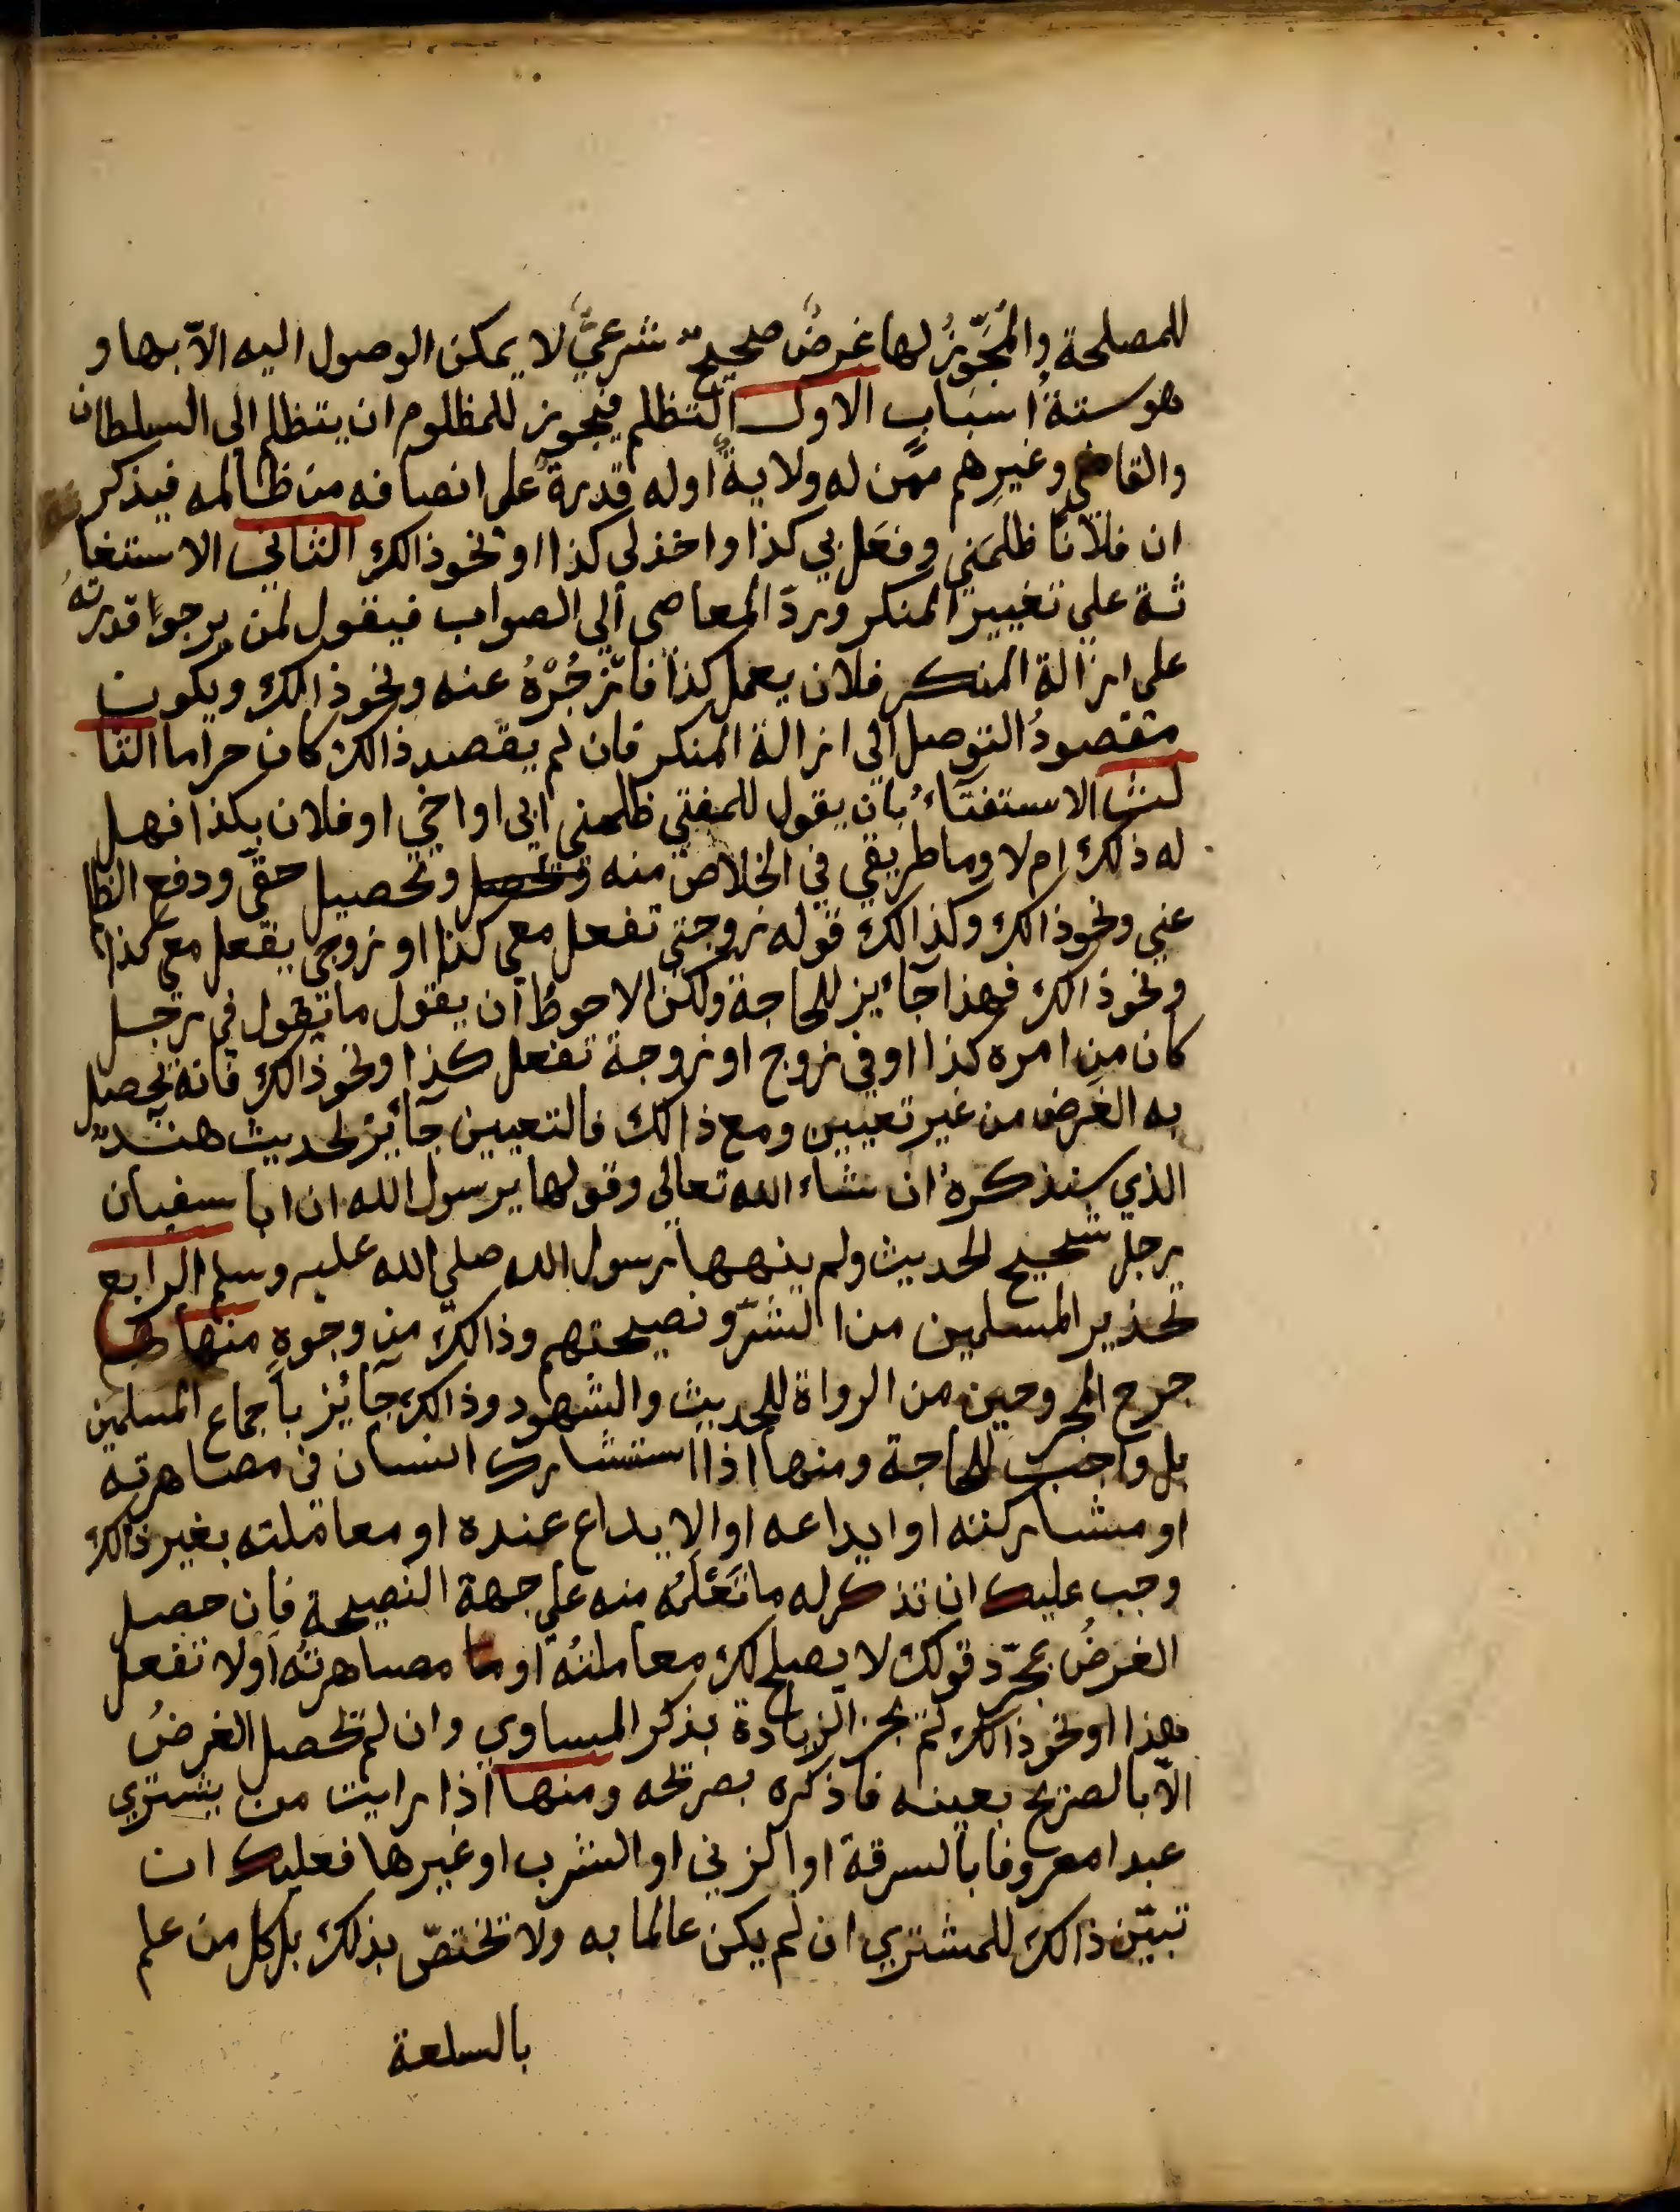 للمصلحة والمُجَوِّزُ لها غرضٌ صحيحٌ شرعيٌّ لا يمكن الوصول اليه الاّ بها و
هو ستةُ اسباب الاول التظلم فيجوز للمظلوم ان يتظلم الى السلطان
والقاضي وغيرهم ممن له ولايةٌ او له قدرةٌ على انصافه من ظالمه فيذكر
ان فلانًا ظلمَني وفعَل بي كذا واخذ لي كذا او نحو ذالك الثاني الاستغا
ثة علي تغيير المنكر وردّ المعاصي الي الصواب فيقول لمن يرجوا قدرتهُ
على ازالة المنكر فلان يعمل كذا فازْجُرْهُ عنه ونحو ذالك ويكون
مقصودُ التوصل الي ازالة المنكر فان لم يقصد ذالك كان حراما الثا
لث الاستفتاءُ بان يقول للمفتي ظلمني ابي او اخي او فلان بكذا فهل
له ذلك ام لا وما طريقي في الخلاص منه وتحصل وتحصيل حقّي ودفع الظلم
عني ونحو ذالك وكذالك قوله زوجتي تفعل معي كذا او زوجي يفعل معي كذا
ونحو ذالك فهذا جآئيز للحاجة ولكن الاحوط ان يقول ما تقول في رجل
كان من امره كذا او في زوج او زوجة تفعل كذا ونحو ذالك فانه يحصل
به الغَرض من غير تعيين ومع ذالك فالتعيين جآئيز لحديث هندٌ
الذي سنذكرهُ ان شاء الله تعالى وقولها يرسول الله ان ابا سفيان
رجل شحيح الحديث ولم ينهها رسول الله صلي الله عليه وسلم الرابع
تحذير المسلمين من الشرّ ونصيحتهم وذالك من وجوهٍ منها
جرح المجروحين من الرواة للحديث والشهود وذالك جآئيز باجماع المسلمين
بل واجب للحاجة ومنها اذا استشارك انسان في مصاهرته
او مشاركته او ايداعه او الايداع عنده او معاملته بغير ذالك
وجب عليك ان تذكر له ما تَعْلَمُه منه علي جهة النصيحة فان حصل
الغرضُ بمجرّد قولك لا يصلح لك معاملتُهُ او ما مصاهرتُه او لا تفعل
هذا او نحو ذالك لم يجز الزيادة بذكر المساوي وان لم تحصل الغرضُ
الاّ بالصريح بعينه فاذكره بصريحه ومنها اذا رايت من يشتري
عبدا معروفا بالسرقة او الزني او الشرب او غيرها فعليك ان
تبيّن ذالك للمشتري ان لم يكن عالما به ولا تختصّ بذلك بل كل من علم
بالسلعة